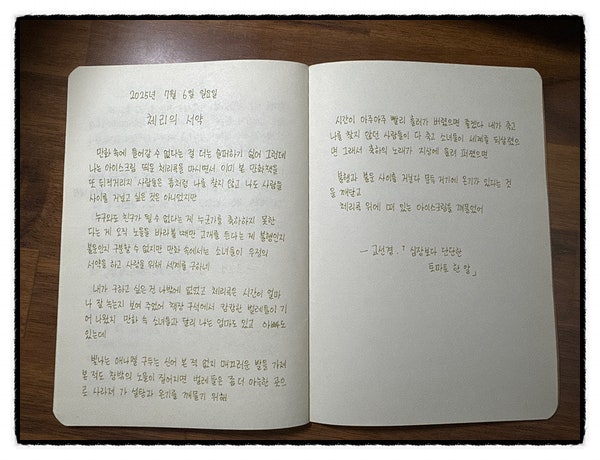 2025년 7월 6일 일요일
체리의 서약
만화 속에 들어갈 수 없다는 걸 더는 슬퍼하기 싫어 그런데
나는 아이스크림 띄운 체리콕을 마시면서 이미 본 만화책을
또 뒤적거리지 사람들은 좀처럼 나를 찾지 않고 나도 사람들
사이를 거닐고 싶은 것은 아니었지만
누구와도 친구가 될 수 없다는 게 누군가를 축하하지 못한
다는 게 오직 노을을 바라볼 때만 고개를 든다는 게 불행인지
불운인지 구분할 수 없지만 만화 속에서는 소녀들이 우정의
서약을 하고 사랑을 위해 세계를 구하네
내가 구하고 싶은 건 나밖에 없었고 체리콕은 시간이 얼마
나 잘 녹는지 보여 주었어 책장 구석에서 캄캄한 벌레들이 기
어 나왔지 만화 속 소녀들과 달리 나는 엄마도 있고 아빠도
있는데
빛나는 에나멜 구두는 신어 본 적 없지 매끄러운 발을 가져
본 적도 창밖의 노을이 짙어지면 벌레들은 좀 더 아늑한 곳으
로 사라져 가 설탕과 온기를 깨물기 위해
시간이 아주아주 빨리 흘러가 버렸으면 좋겠다 내가 죽고
나를 찾지 않던 사람들이 다 죽고 소녀들이 세계를 되살렸으
면 그래서 축하의 노래가 지상에 흘러 퍼졌으면
불행과 불운 사이를 거닐다 문득 거기에 온기가 있다는 것
을 깨닫고
체리콕 위에 떠 있는 아이스크림을 깨물었어
— 고선경, 「심장보다 단단한
토마토 한 알」